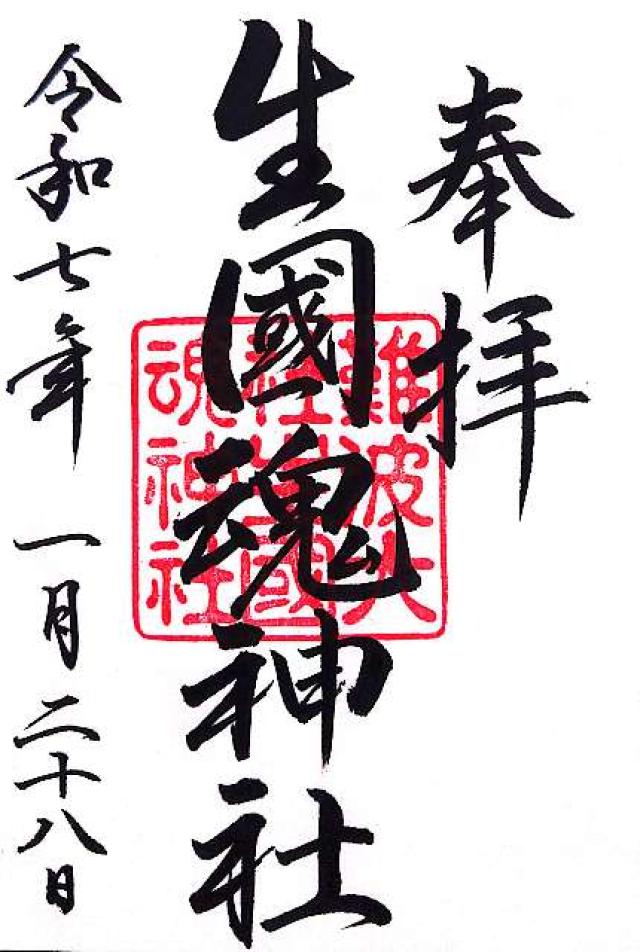 奉拝
生國魂神社
難波大
社生國
魂神社
令和七年 一月二十八日